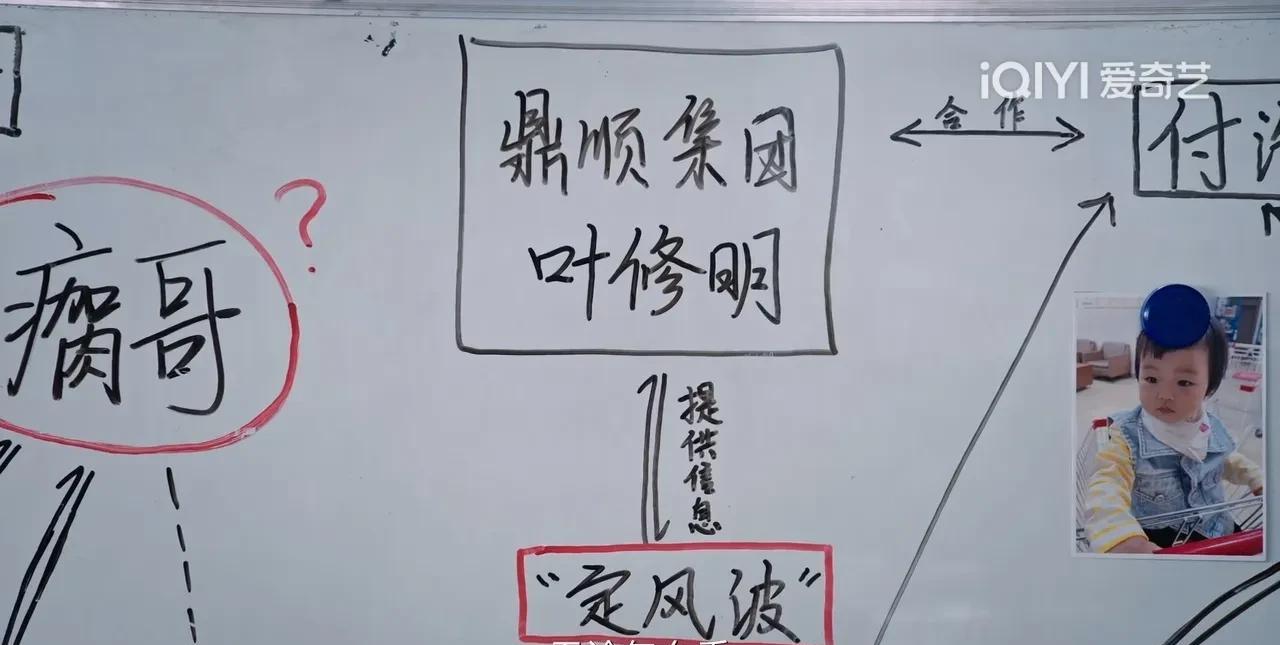 iQIYI 爱奇艺
合作
鼎顺集团
付
叶修明
?
瘸哥
提供信息
“定风波”